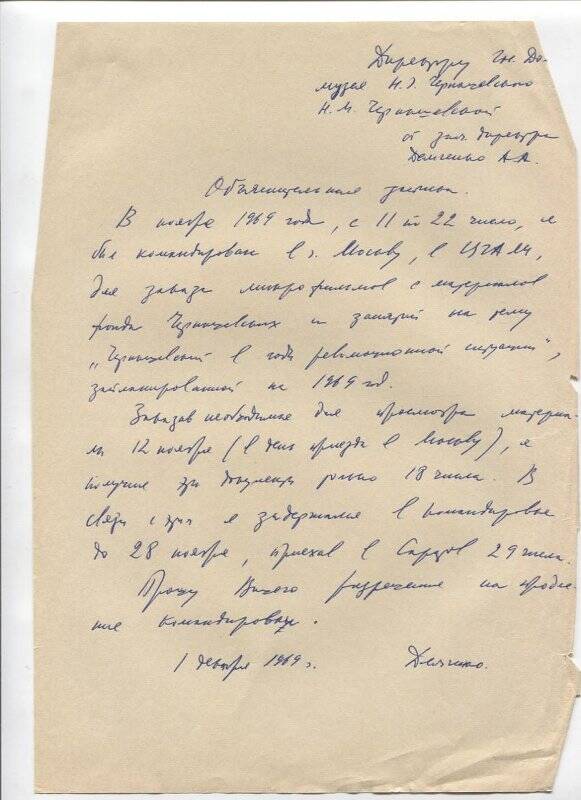 Директору Дома-
музея Н.Г. Чернышевского
Н.М. Чернышевской
от зам. директора
Демченко А.А.
Объяснительная записка.
В ноябре 1969 года, с 11 по 22 число, я
был командирован в г. Москву, в ЦГАЛИ,
для заказа микрофильмов с материалов
фонда Чернышевских и занятий на тему
„Чернышевский в годы революционной ситуации",
запланированной на 1969 год.
Заказав необходимые для просмотра материа-
лы 12 ноября (в день приезда в Москву), я
получил эти документы только 18 числа. В
связи с этим я задержался в командировке
до 28 ноября, приехав в Саратов 29 числа.
Прошу Вашего разрешения на продле-
ние командировки.
1 декабря 1969 г. Демченко.